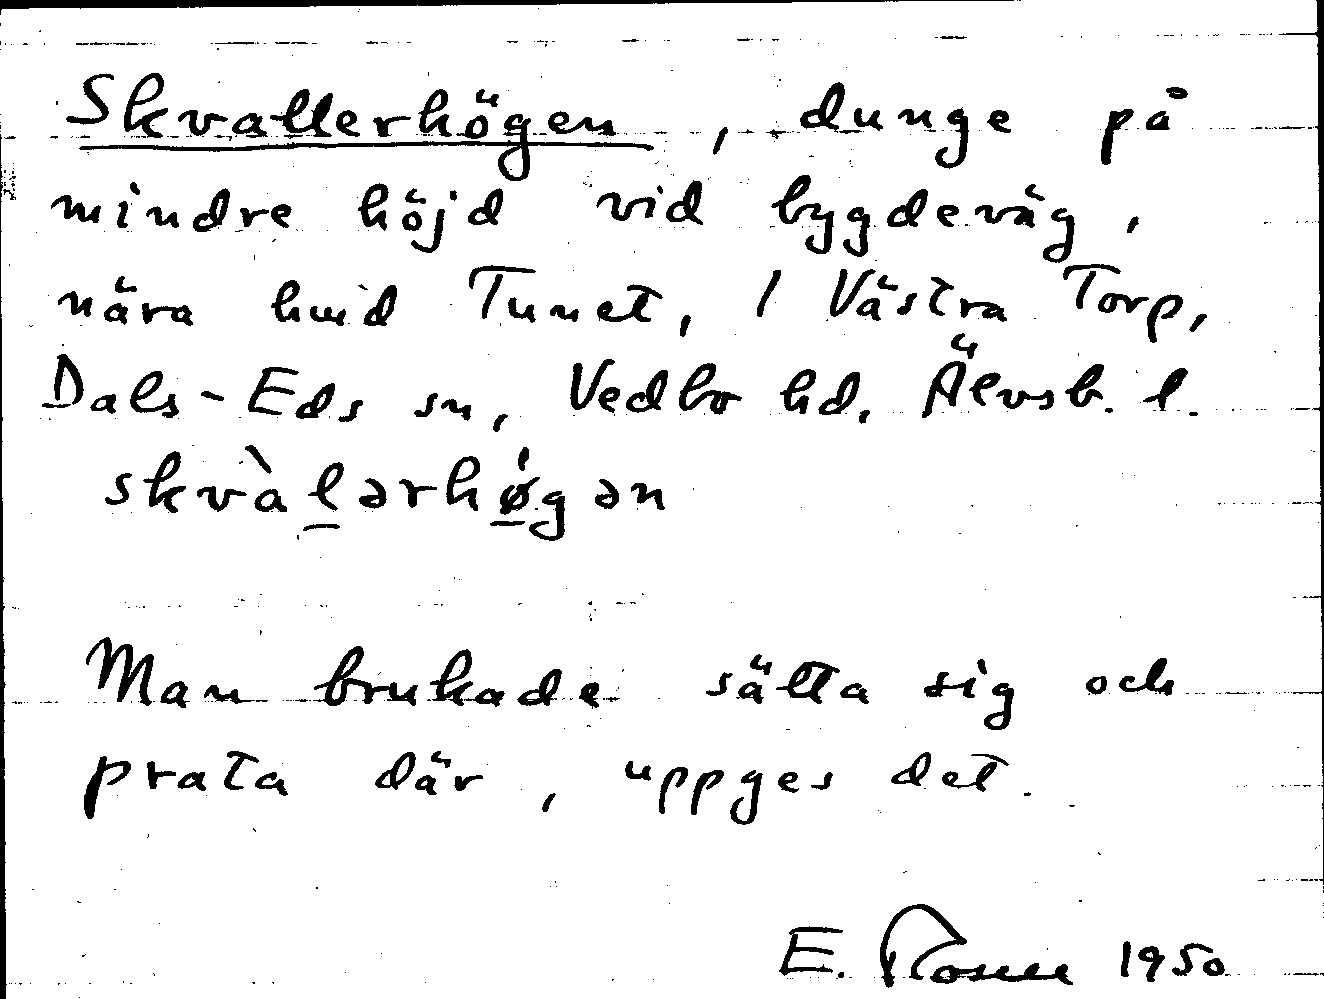 Skvallerhögen, dunge på
mindre höjd vid bygdeväg,
nära hmd Tunet, 1 Västra Torp,
Dals-Eds sn, Vedbo hd. Älvsb. l.
skvàl̲ərhǿ̲gən
Man brukade sätta sig och
prata där, uppges det.
E. Rosell 1950